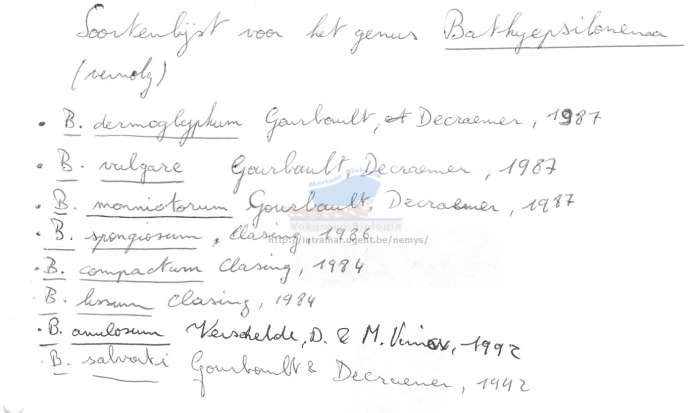 Soortenlijst voor het genus Bathyepsilonema
(vervolg)
• B. dermoglyphum Gourbault, et Decraemer, 1987
• B. vulgare Gourbault, Decraemer, 1987
• B. monniotorum Gourbault, Decraemer, 1987
• B. spongiosum, Clasing, 1986
http://intramar.ugent.be/nemys/
• B. compactum Clasing, 1984
• B. lissum Clasing, 1984
• B. anulosum Verschelde, D. & M. Vincx, 1992
• B. salvati Gourbault & Decraemer, 1992